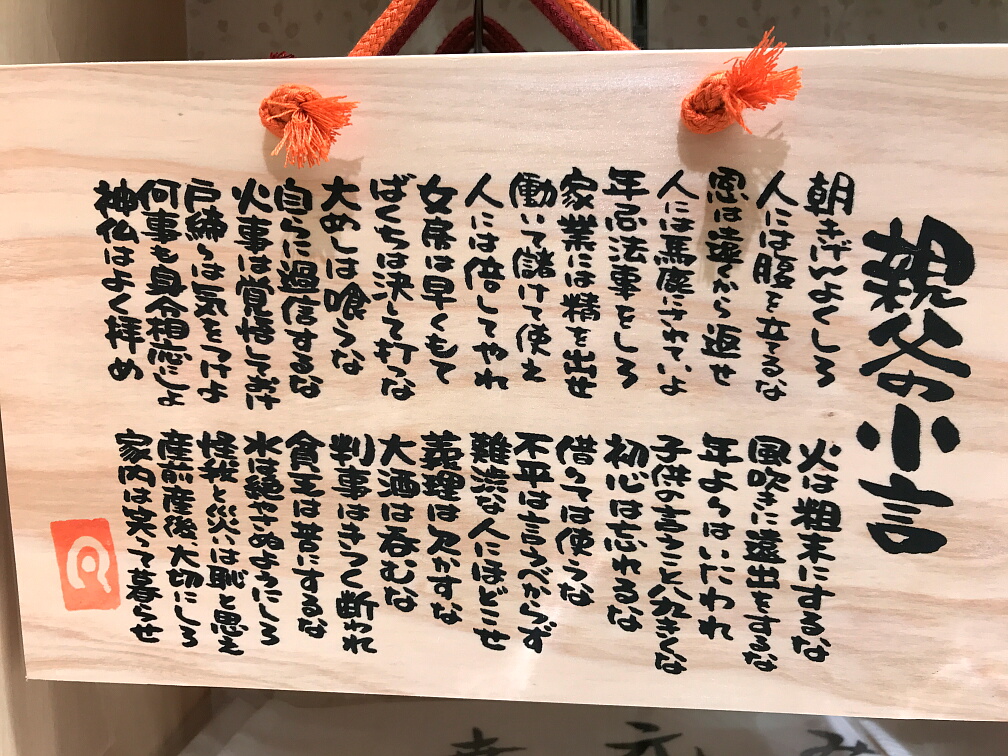 親父の小言
朝きげんよくしろ
人には腹を立てるな
恩は遠くから返せ
人には馬鹿にされていよ
年忌法事をしろ
家業には精を出せ
働いて儲けて使え
人には倍してやれ
女房は早くもて
ばくちは決して打つな
大めしは喰うな
自らに過信するな
火事は覚悟しておけ
戸締りは気をつけよ
何事も身分相応にしよ
神仏はよく拝め
火は粗末にするな
風吹きに遠出をするな
年よりはいたわれ
子供の言うこと八九きくな
初心は忘れるな
借りては使うな
不平は言うべからず
難渋な人にほどこせ
義理は欠かすな
大酒は呑むな
判事はきつく断われ
貧乏は苦にするな
水は絶やさぬようにしろ
怪我と災いは恥と思え
産前産後大切にしろ
家内は笑って暮らせ